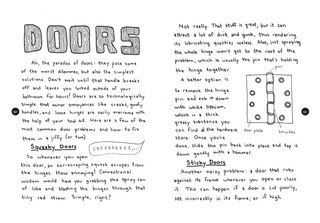 DOORS
Ah, the paradox of doors: they pose some
of the worst dilemmas, but also the simplest
solutions. Don't wait until that handle breaks
off and leaves you locked outside of your
bathroom for hours! Doors are so technologically
simple that minor annoyances like creaks, goofy
handles, and loose hinges are easily overcome with
the help of your tool set. Here are a few of the
most common door problems and how to fix
them in a jiffy (or two).
Squeaky Doors
So whenever you open
this door, an ear-scraping squeak escapes from
the hinges. How annoying! Conventional
wisdom would have you grabbing the spray can
of lube and blasting the hinges through that
tiny red straw. Simple, right?
Not really. That stuff is great, but it can
attract a lot of dust and gunk, thus rendering
its lubricating qualities useless. Also, just spraying
the whole hinge won't get to the root of the
problem, which is usually the pin that's holding
the hinge together.
A better option is
to remove the hinge
pin and rub it down
with white lithium,
which is a thick
greasy substance you
can find at the hardware
store. Once you're
done, slide the pin back into place and tap it
down gently with a hammer.
pin
door plate
knuckles
Sticky Doors
Another noisy problem: a door that rubs
against its frame whenever you open or close
it. This can happen if a door is cut poorly,
set incorrectly in its frame, or if high